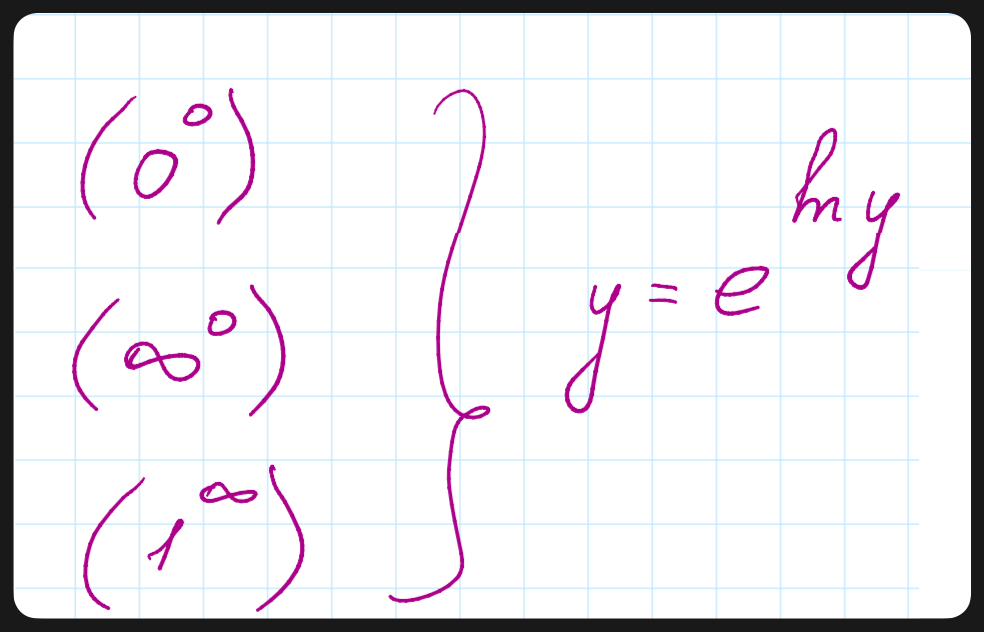 (0⁰)
(∞⁰)
(1^∞)
} y = e^{ln y}